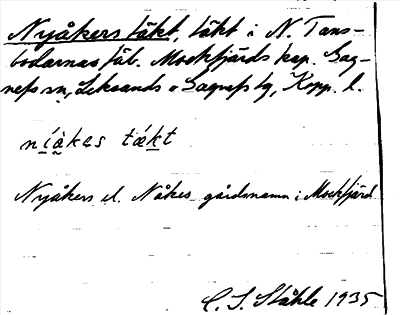 Nyåkers täkt, täkt i N. Tans-
bodarnas fäb. Mockfjärds kap. Gag-
nefs sn, Leksands o Gagnefs tg, Kopp. l.
níàkes täkt
Nyåkers el. Nåkes gårdsnamn i Mockfjärd
C. I. Ståhle 1935